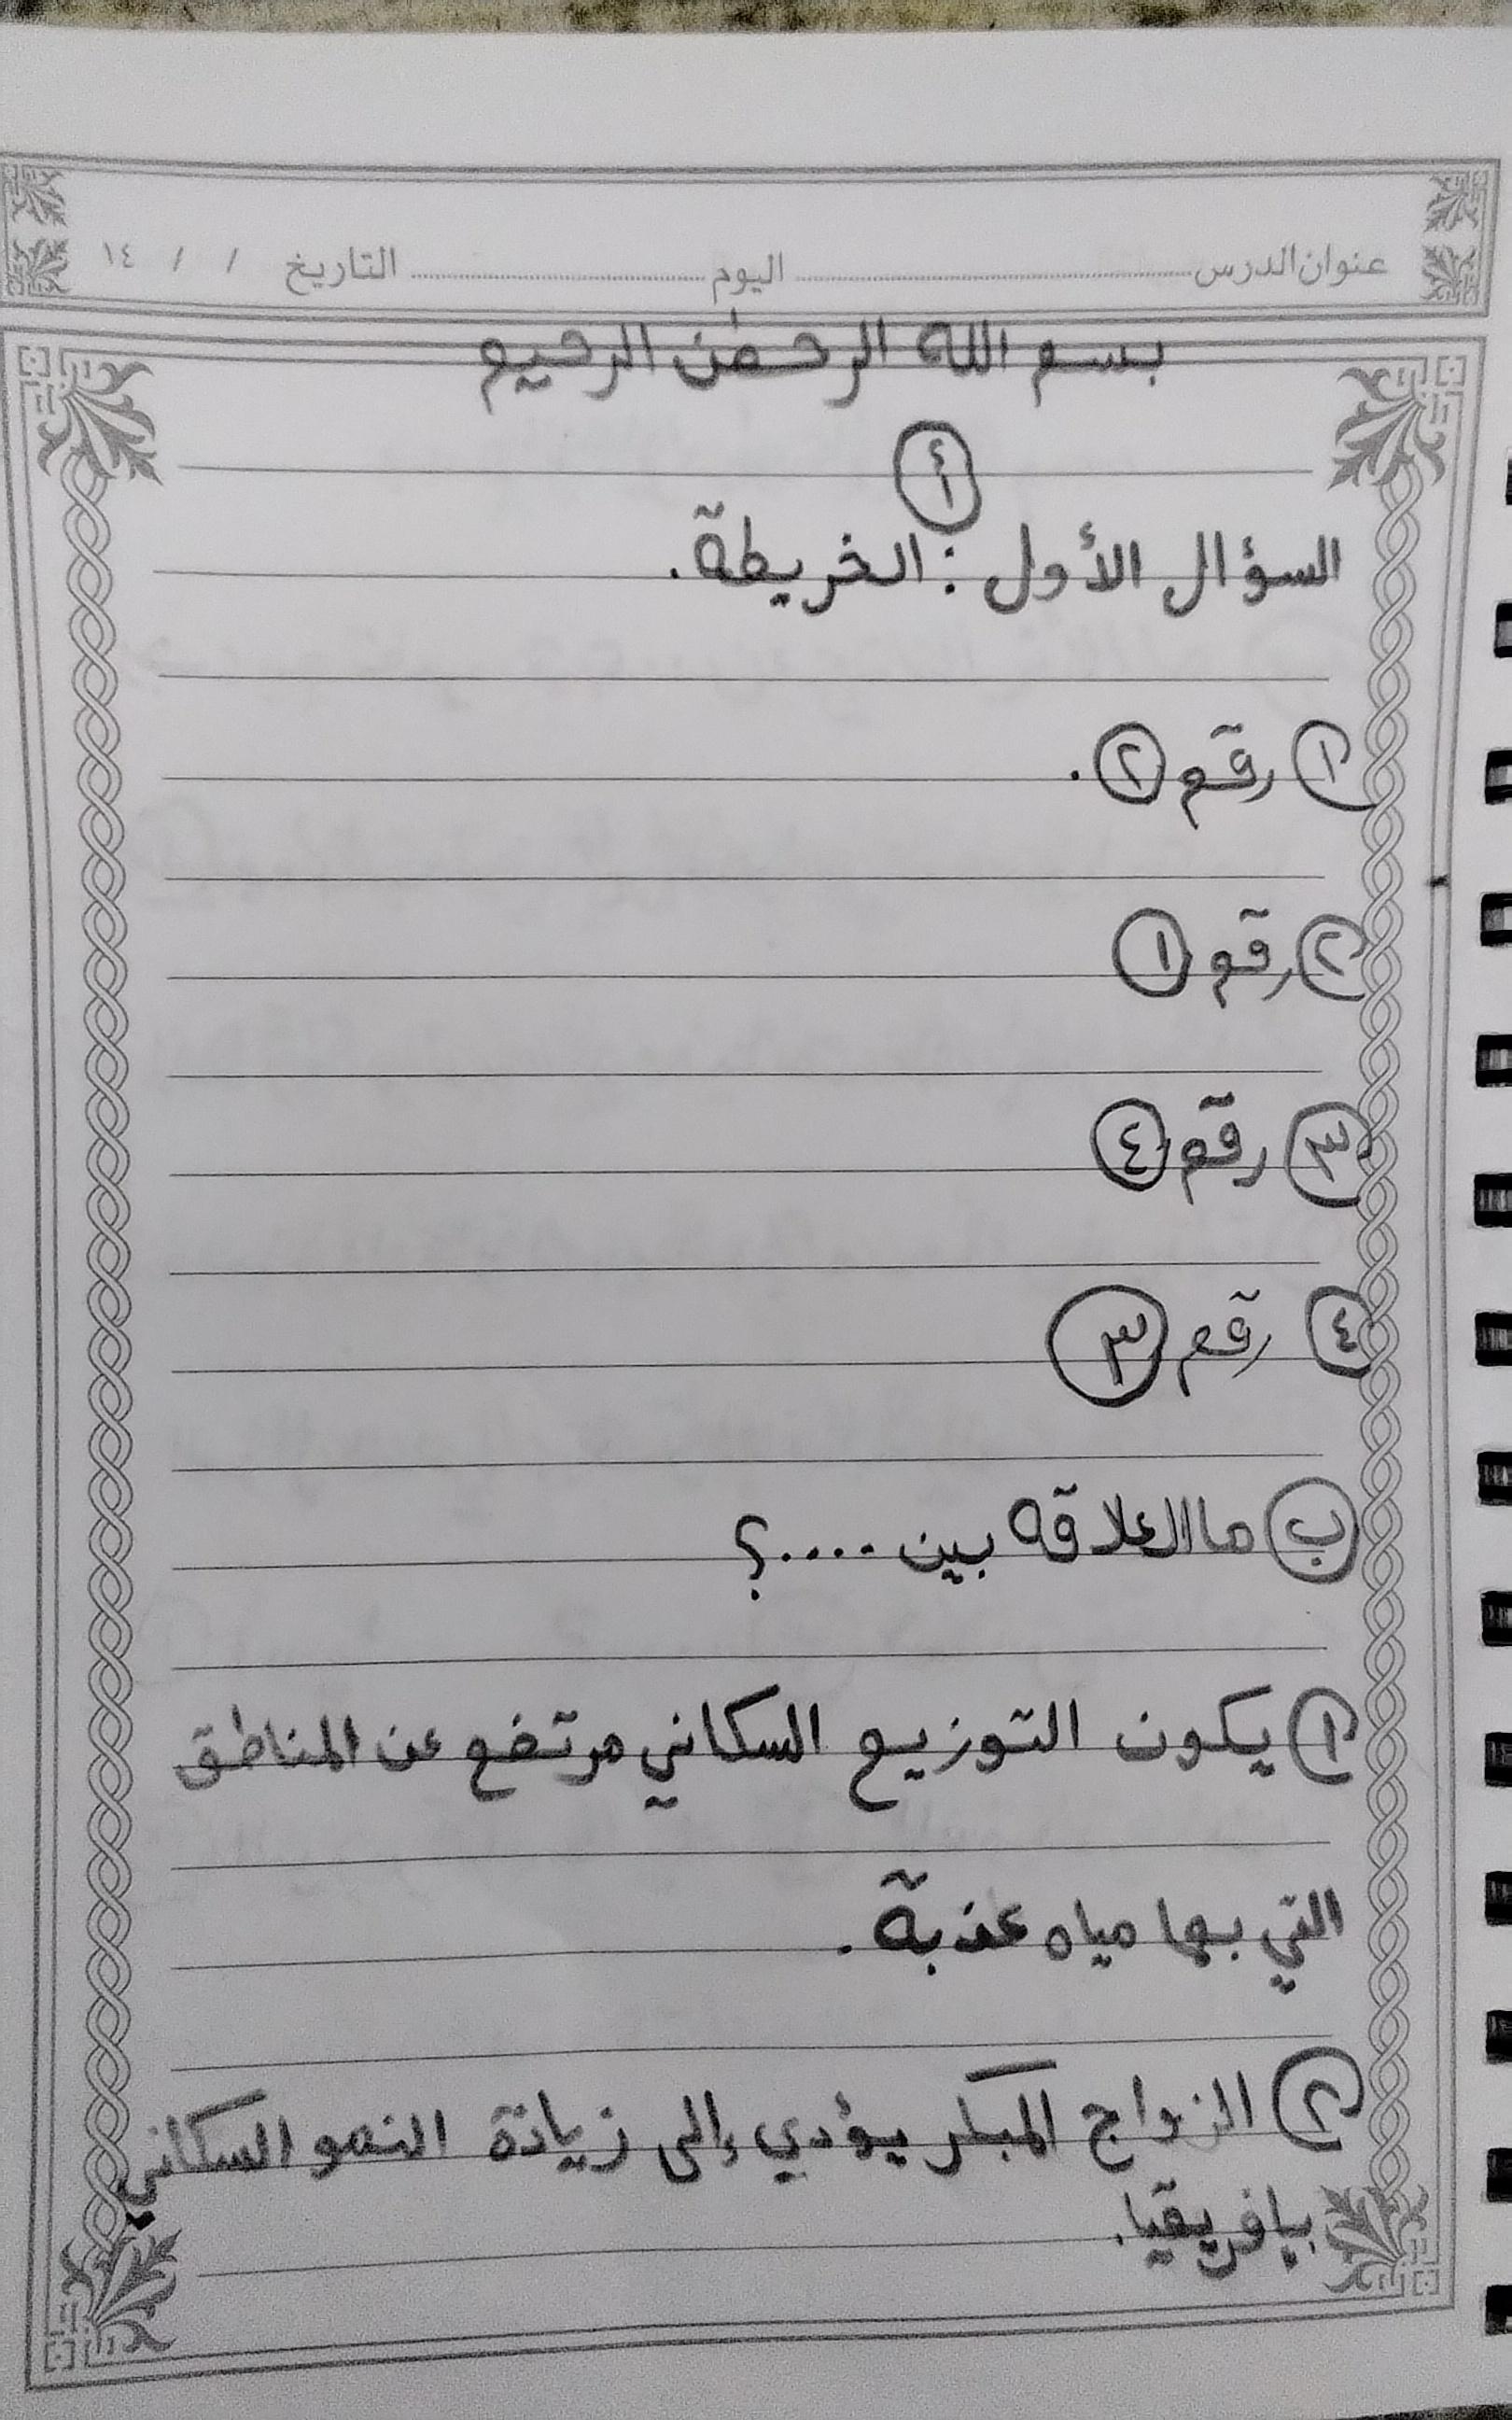 عنوان الدرس ........ اليوم ........ التاريخ / / ١٤
بسم الله الرحمٰن الرحيم
أ
السؤال الأول : الخريطة .
١ رقم ٢ .
٢ رقم ١
٣ رقم ٤
٤ رقم ٣
ب ما العلاقه بين ....؟
١ يكون التوزيع السكاني مرتفع عن المناطق
التي بها مياه عذبة .
٢ الزواج المبكر يؤدي إلى زيادة النمو السكاني
بافريقيا .